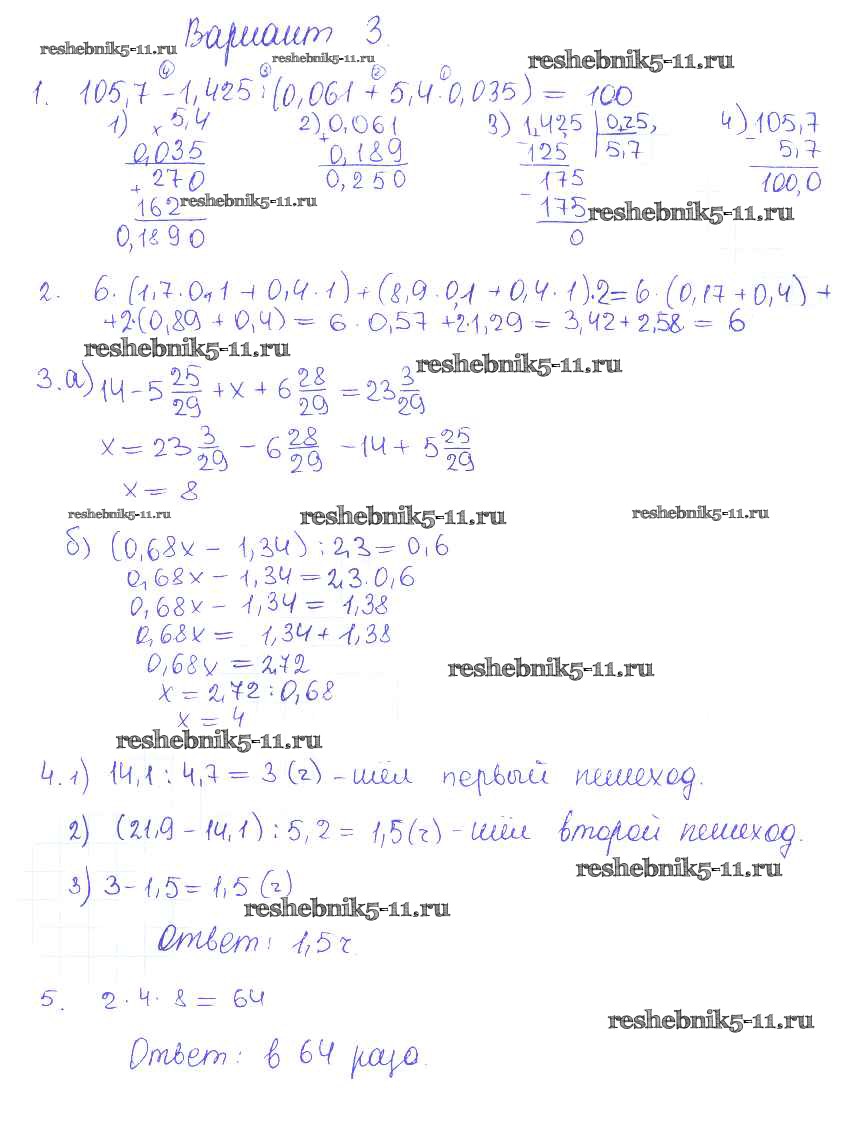 Вариант 3.
reshebnik5-11.ru reshebnik5-11.ru reshebnik5-11.ru
④ ③ ② ①
1. 105,7 - 1,425 : (0,061 + 5,4 · 0,035) = 100
1) × 5,4 2) 0,061 3) 1,425 | 0,25, 4) 105,7
0,035 + 0,189 - 125 | 5,7 - 5,7
+ 270 0,250 175 100,0
162 reshebnik5-11.ru - 175 reshebnik5-11.ru
0,1890 0
2. 6·(1,7·0,1 + 0,4·1) + (8,9·0,1 + 0,4·1)·2 = 6·(0,17 + 0,4) +
+2·(0,89 + 0,4) = 6·0,57 + 2·1,29 = 3,42 + 2,58 = 6
reshebnik5-11.ru reshebnik5-11.ru
3. а) 14 - 5 25/29 + x + 6 28/29 = 23 3/29
x = 23 3/29 - 6 28/29 - 14 + 5 25/29
x = 8
reshebnik5-11.ru reshebnik5-11.ru reshebnik5-11.ru
б) (0,68x - 1,34) : 2,3 = 0,6
0,68x - 1,34 = 2,3·0,6
0,68x - 1,34 = 1,38
0,68x = 1,34 + 1,38
0,68x = 2,72
reshebnik5-11.ru
x = 2,72 : 0,68
x = 4
reshebnik5-11.ru
4. 1) 14,1 : 4,7 = 3 (г) - шёл первый пешеход.
2) (21,9 - 14,1) : 5,2 = 1,5 (г) - шёл второй пешеход.
reshebnik5-11.ru
3) 3 - 1,5 = 1,5 (г)
reshebnik5-11.ru
Ответ: 1,5 г
5. 2·4·8 = 64
reshebnik5-11.ru
Ответ: в 64 раза.